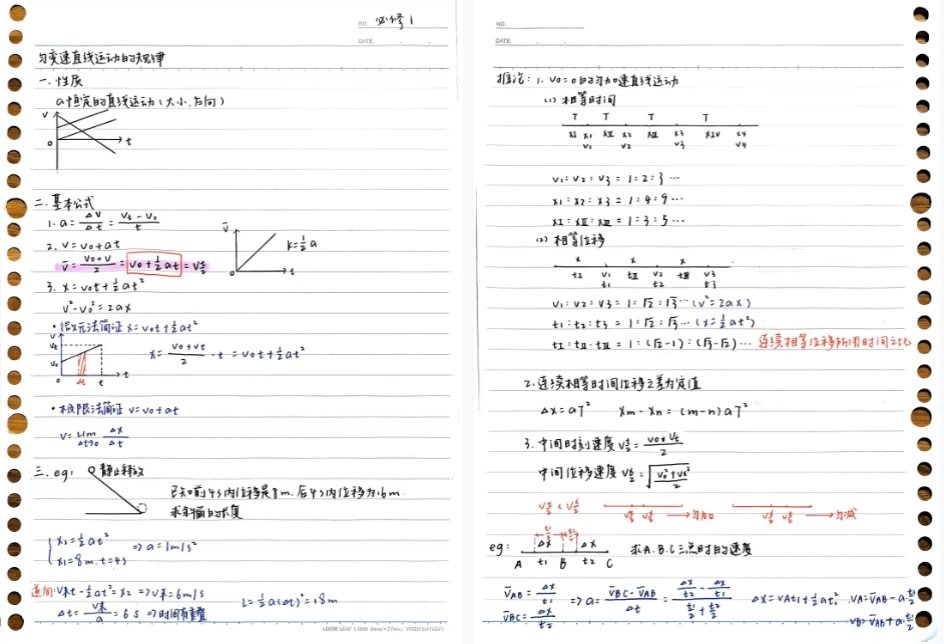 NO. 必修1
DATE
匀变速直线运动的规律
一.性质
a恒定的直线运动(大小.方向)
v
0
t
二.基本公式
1. a = Δv/Δt = (vt - v0)/t
2. v = v0 + at
v̄ = (v0+v)/2 = v0 + ½at = v t/2
v̄
k = ½a
0
t
3. x = v0t + ½at²
v² - v0² = 2ax
•微元法简证 x = v0t + ½at²
v
vt
v0
0 Δt t t
x = (v0+vt)/2 · t = v0t + ½at²
•极限法简证 v = v0 + at
v = lim Δt→0 Δx/Δt
三. eg: 静止释放
已知前4s内位移是8m.后4s内位移为16m.
求斜面的长度
x1 = ½at² ⇒ a = 1m/s²
x1 = 8m. t = 4s
逆向: v末t - ½at² = x2 ⇒ v末 = 6m/s
Δt = v末/a = 6s ⇒ 时间有重叠
L = ½a(Δt)² = 18m
LOOSE LEAF
maruman
NO.
DATE
推论: 1. v0 = 0的匀加速直线运动
(1) 相等时间
T T T T
xI x1 xII x2 xIII x3 xIV x4
v1 v2 v3 v4
v1 : v2 : v3 = 1 : 2 : 3 …
x1 : x2 : x3 = 1 : 4 : 9 …
xI : xII : xIII = 1 : 3 : 5 …
(2) 相等位移
x x x
tI v1 tII v2 tIII v3
t1 t2 t3
v1 : v2 : v3 = 1 : √2 : √3 … (v² = 2ax)
t1 : t2 : t3 = 1 : √2 : √3 … (x = ½at²)
tI : tII : tIII = 1 : (√2-1) : (√3-√2) … 连续相等位移所用时间之比
2. 连续相等时间位移之差为定值
Δx = aT² xm - xn = (m-n)aT²
3. 中间时刻速度 v t/2 = (v0+vt)/2
中间位移速度 v x/2 = √((v0²+vt²)/2)
v t/2 < v x/2
v t/2 v x/2 → 匀加
v x/2 v t/2 → 匀减
eg: t1/2 t2/2
Δx Δx
A t1 B t2 C
求A.B.C三点时的速度
v̄AB = Δx/t1
v̄BC = Δx/t2
⇒ a = (v̄BC - v̄AB)/Δt = (Δx/t2 - Δx/t1)/(t1/2 + t2/2)
Δx = vAt1 + ½at1²
vA = v̄AB - a·t1/2
vB = v̄AB + a·t1/2